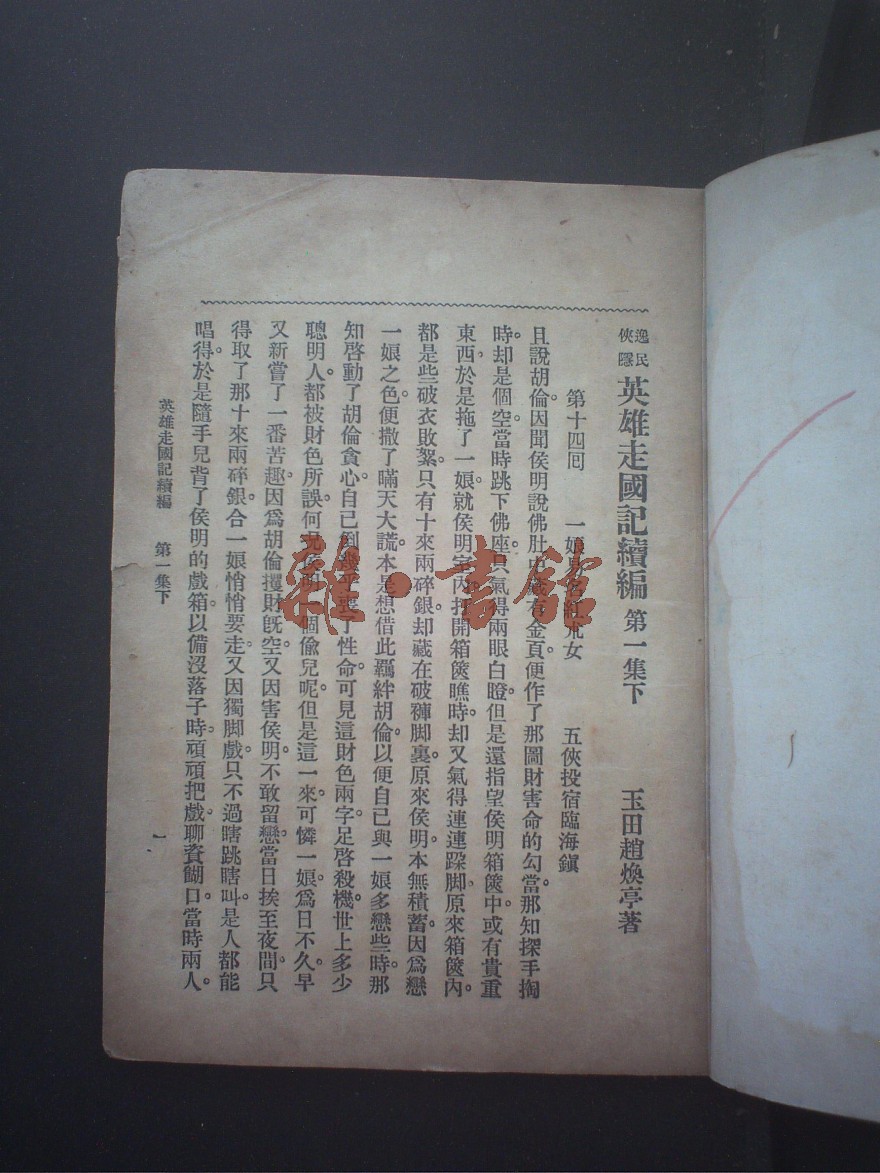 逸民
俠隱
英雄走國記續編 第一集下 玉田趙煥亭著
第十四回 一娘 女 五俠投宿臨海鎭
且說胡倫因聞侯明說佛肚中藏有金頁。便作了那圖財害命的勾當。那知探手掏
時。却是個空。當時跳下佛座。只氣得兩眼白瞪。但是還指望侯明箱篋中。或有貴重
東西。於是拖了一娘。就侯明 內打開箱篋瞧時。却又氣得連連跺脚。原來箱篋內。
都是些破衣敗絮。只有十來兩碎銀。却藏在破褲脚裏。原來侯明。本無積蓄。因爲戀
一娘之色。便撒了瞞天大謊。本是想借此羈絆胡倫。以便自已與一娘多戀些時。那
知啓動了胡倫貪心。自已倒 了性命。可見這財色兩字。足啓殺機。世上多少
聰明人。都被財色所誤。何况侯明一個偸兒呢。但是這一來。可憐一娘。爲日不久。早
又新嘗了一番苦趣。因爲胡倫攫財旣空。又因害侯明。不敢留戀。當日挨至夜間。只
得取了那十來兩碎銀。合一娘悄悄要走。又因獨脚戲。只不過瞎跳瞎叫。是人都能
唱得。於是隨手兒背了侯明的戲箱。以備沒落子時。頑頑把戲。聊資餬口。當時兩人。
英雄走國記續編 第一集下 一
雜·書館